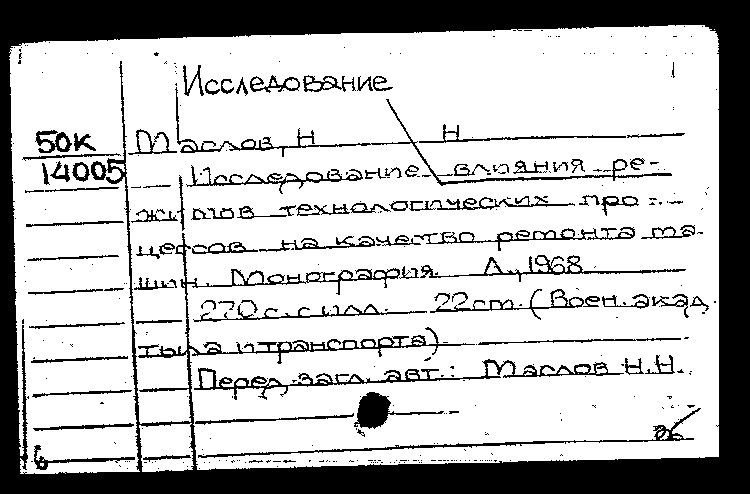 Исследование
50К Маслов, Н Н
14005 Исследование влияния ре-
жимов технологических про-
цессов на качество ремонта ма-
шин. Монография. Л., 1968
270 с. с илл. 22 cm. (Воен. акад.
тыла и транспорта)
Перед загл. авт.: Маслов Н.Н.